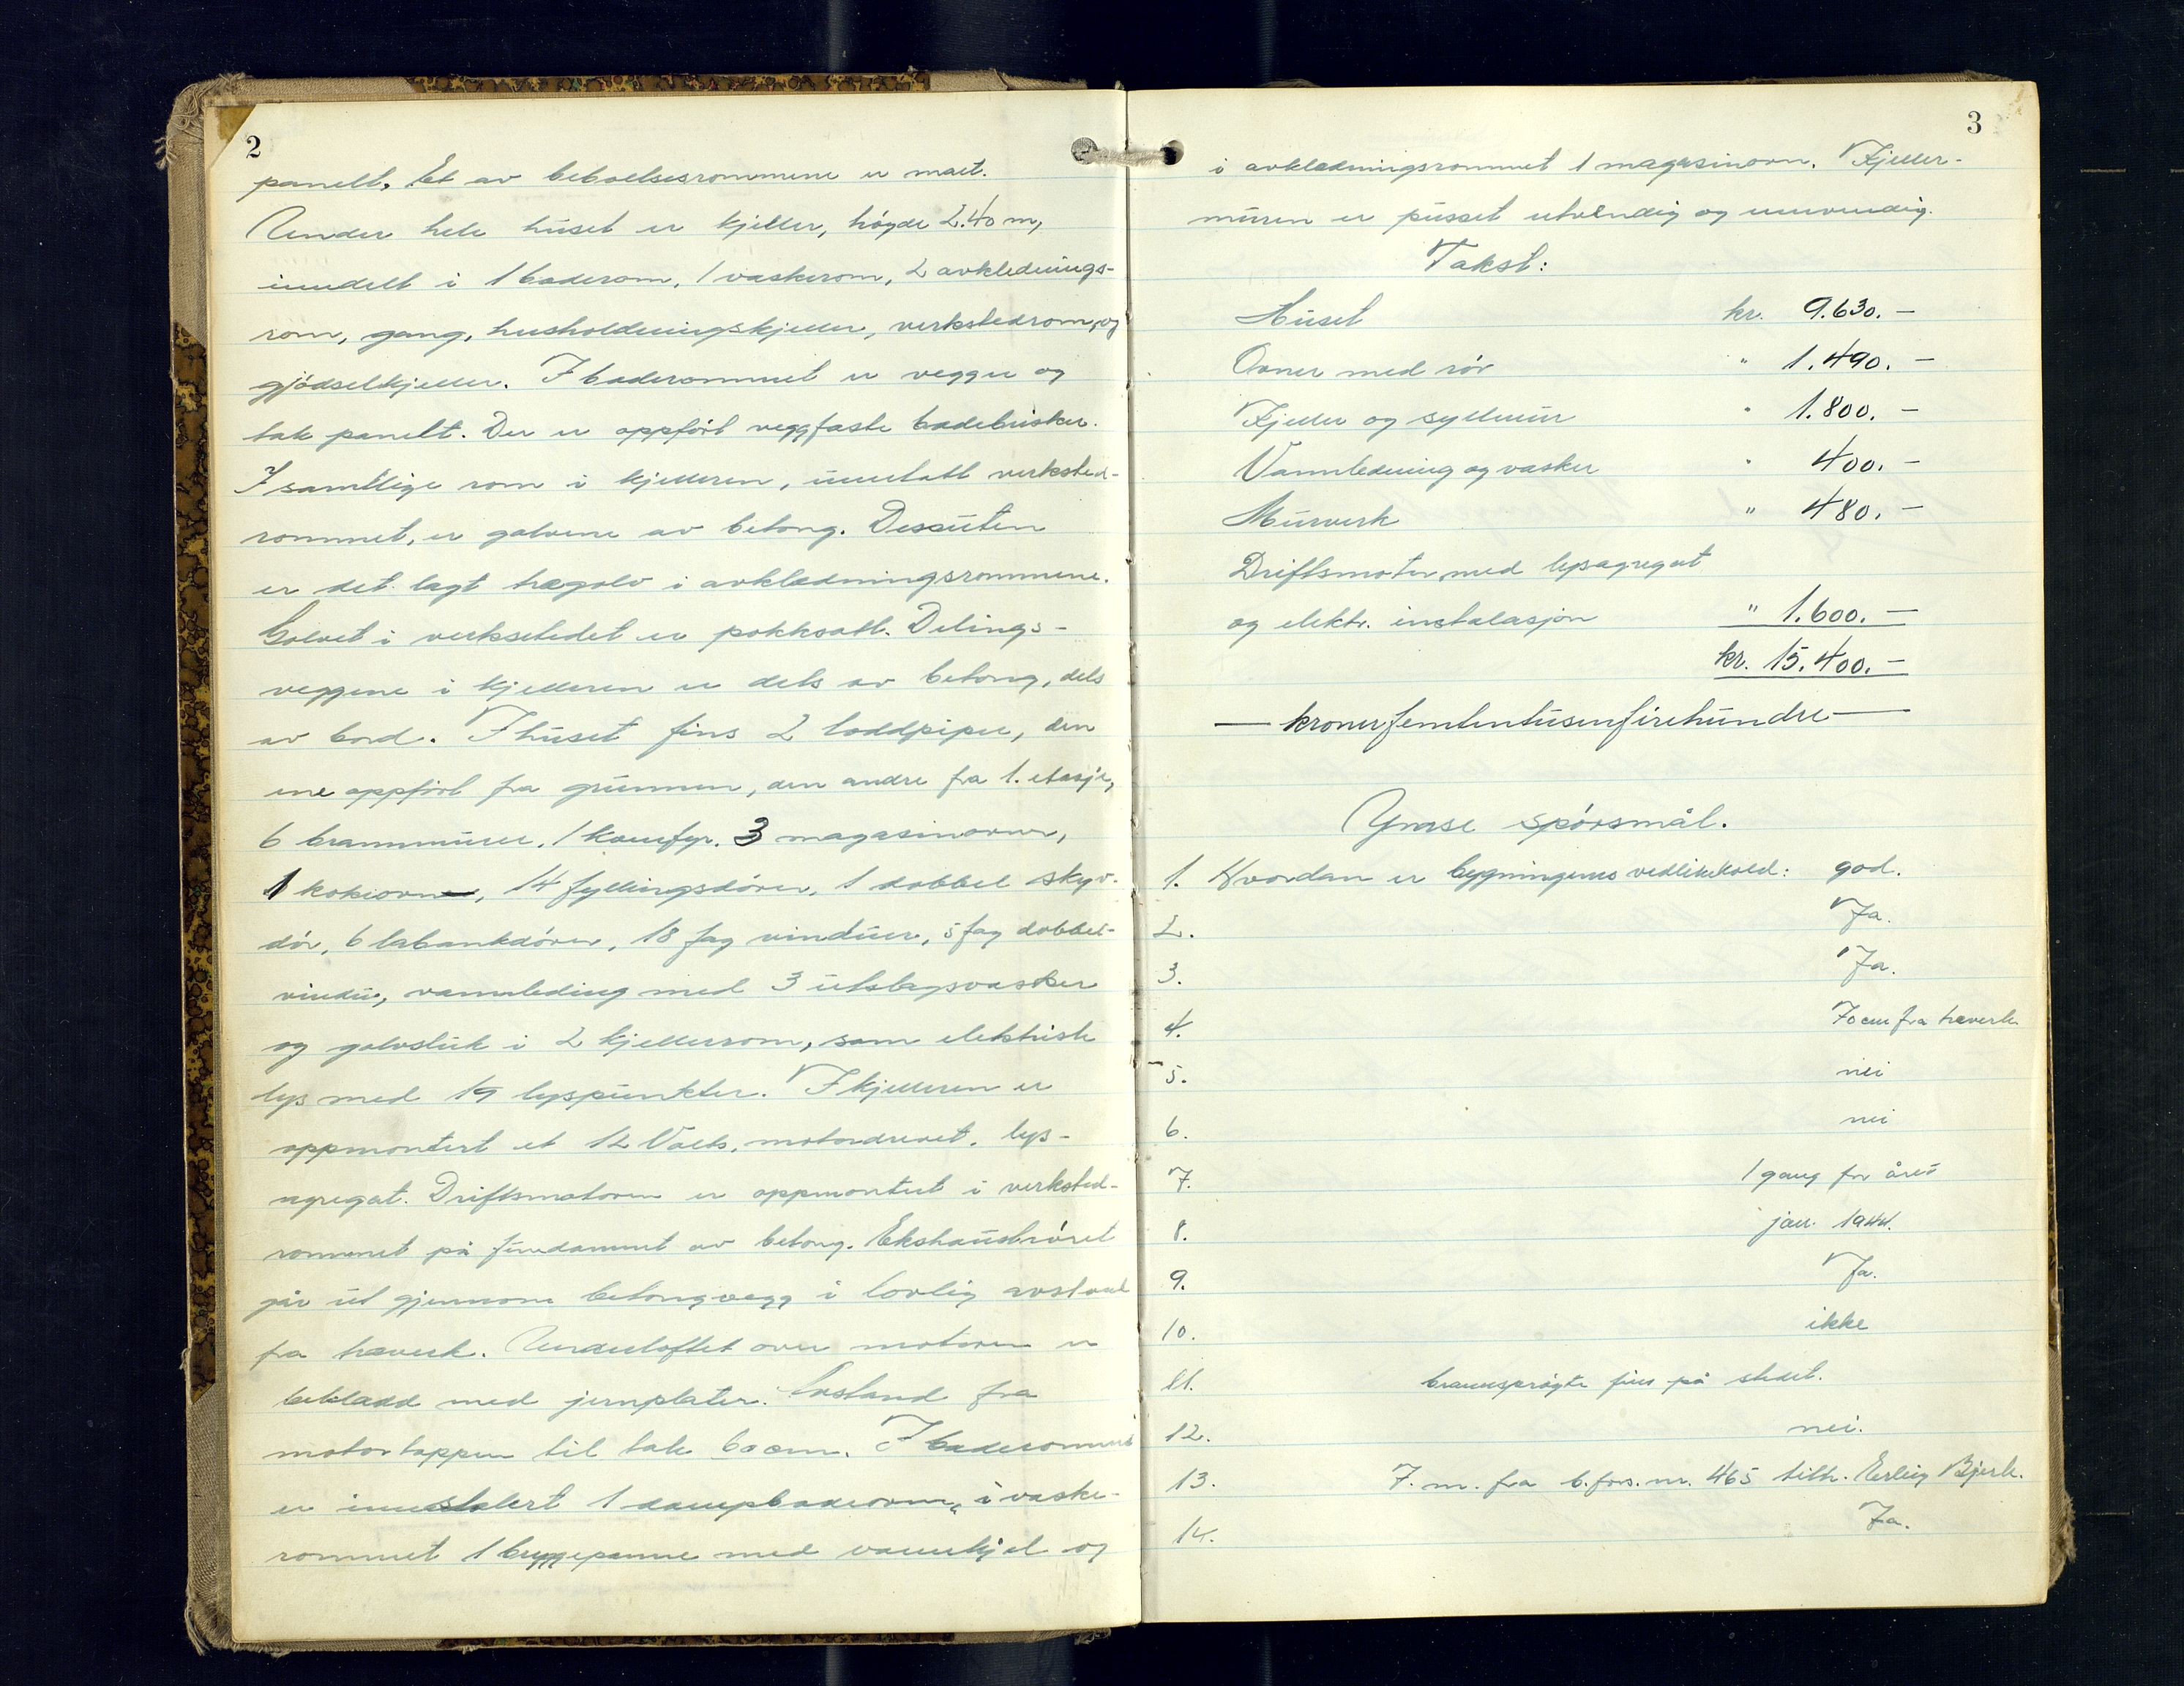 2
panelt. Et av beboelsesrommene er malt.
Under hele huset er kjeller, høgde 2.40 m,
inndelt i 1 baderom, 1 vaskerom, 2 avklednings-
rom, gang, husholdningskjeller, verkstedrom, og
gjødselkjeller. I baderommet er vegger og
tak panelt. Der er oppført veggfaste badebrisker.
I samtlige rom i kjelleren, unntatt verksted-
rommet, er golvene av betong. Dessuten
er det lagt tregolv i avkledningsrommene.
Golvet i verkstedet er pokksatt. Delings-
veggene i kjelleren er dels av betong, dels
av bord. I huset fins 2 loddpiper, den
ene oppført fra grunnen, den andre fra 1. etasje,
6 brannmurer, 1 komfyr, 3 magasinovner,
1 kokeovn, 14 fyllingsdører, 1 dobbel skyv-
dør, 6 labankdører, 18 fag vinduer, 5 fag dobbel-
vindu, vannleding med 3 utslagsvasker
og golvsluk i 2 kjellerrom, samt elektrisk
lys med 19 lyspunkter. I kjelleren er
oppmontert et 12 Volts, motordrevet, lys-
agregat. Driftsmotoren er oppmontert i verksted-
rommet på fundament av betong. Ekshaustrøret
går ut gjennom betongvegg i lovlig avstand
fra treverk. Underloftet over motoren er
bekladd med jernplater. Avstand fra
motortoppen til tak 60 cm. I baderommet
er innstalert 1 dampbadeovn, i vaske-
rommet 1 bryggepanne med vannkjel og
3
i avkledningsrommet 1 magasinovn. Kjeller-
muren er pusset utvendig og innvendig.
Takst:
Huset kr. 9.630.-
Ovner med rør " 1.490.-
Kjeller og syllmur " 1.800.-
Vannledning og vasker " 400.-
Murverk " 480.-
Driftsmotor med lysagregat
og elektr. instalasjon " 1.600.-
kr. 15.400.-
— kronerfemtentusenfirehundre —
Ymse spørsmål.
1. Hvordan er bygningens vedlikehold: god.
2. Ja.
3. Ja.
4. 70 cm fra treverk
5. nei
6. nei
7. 1 gang for året
8. jan. 1944.
9. Ja.
10. ikke
11. brannsprøyte fins på stedet.
12. nei.
13. 7. m. fra b.fors.nr. 465 tilh. Erling Bjerk.
14. Ja.